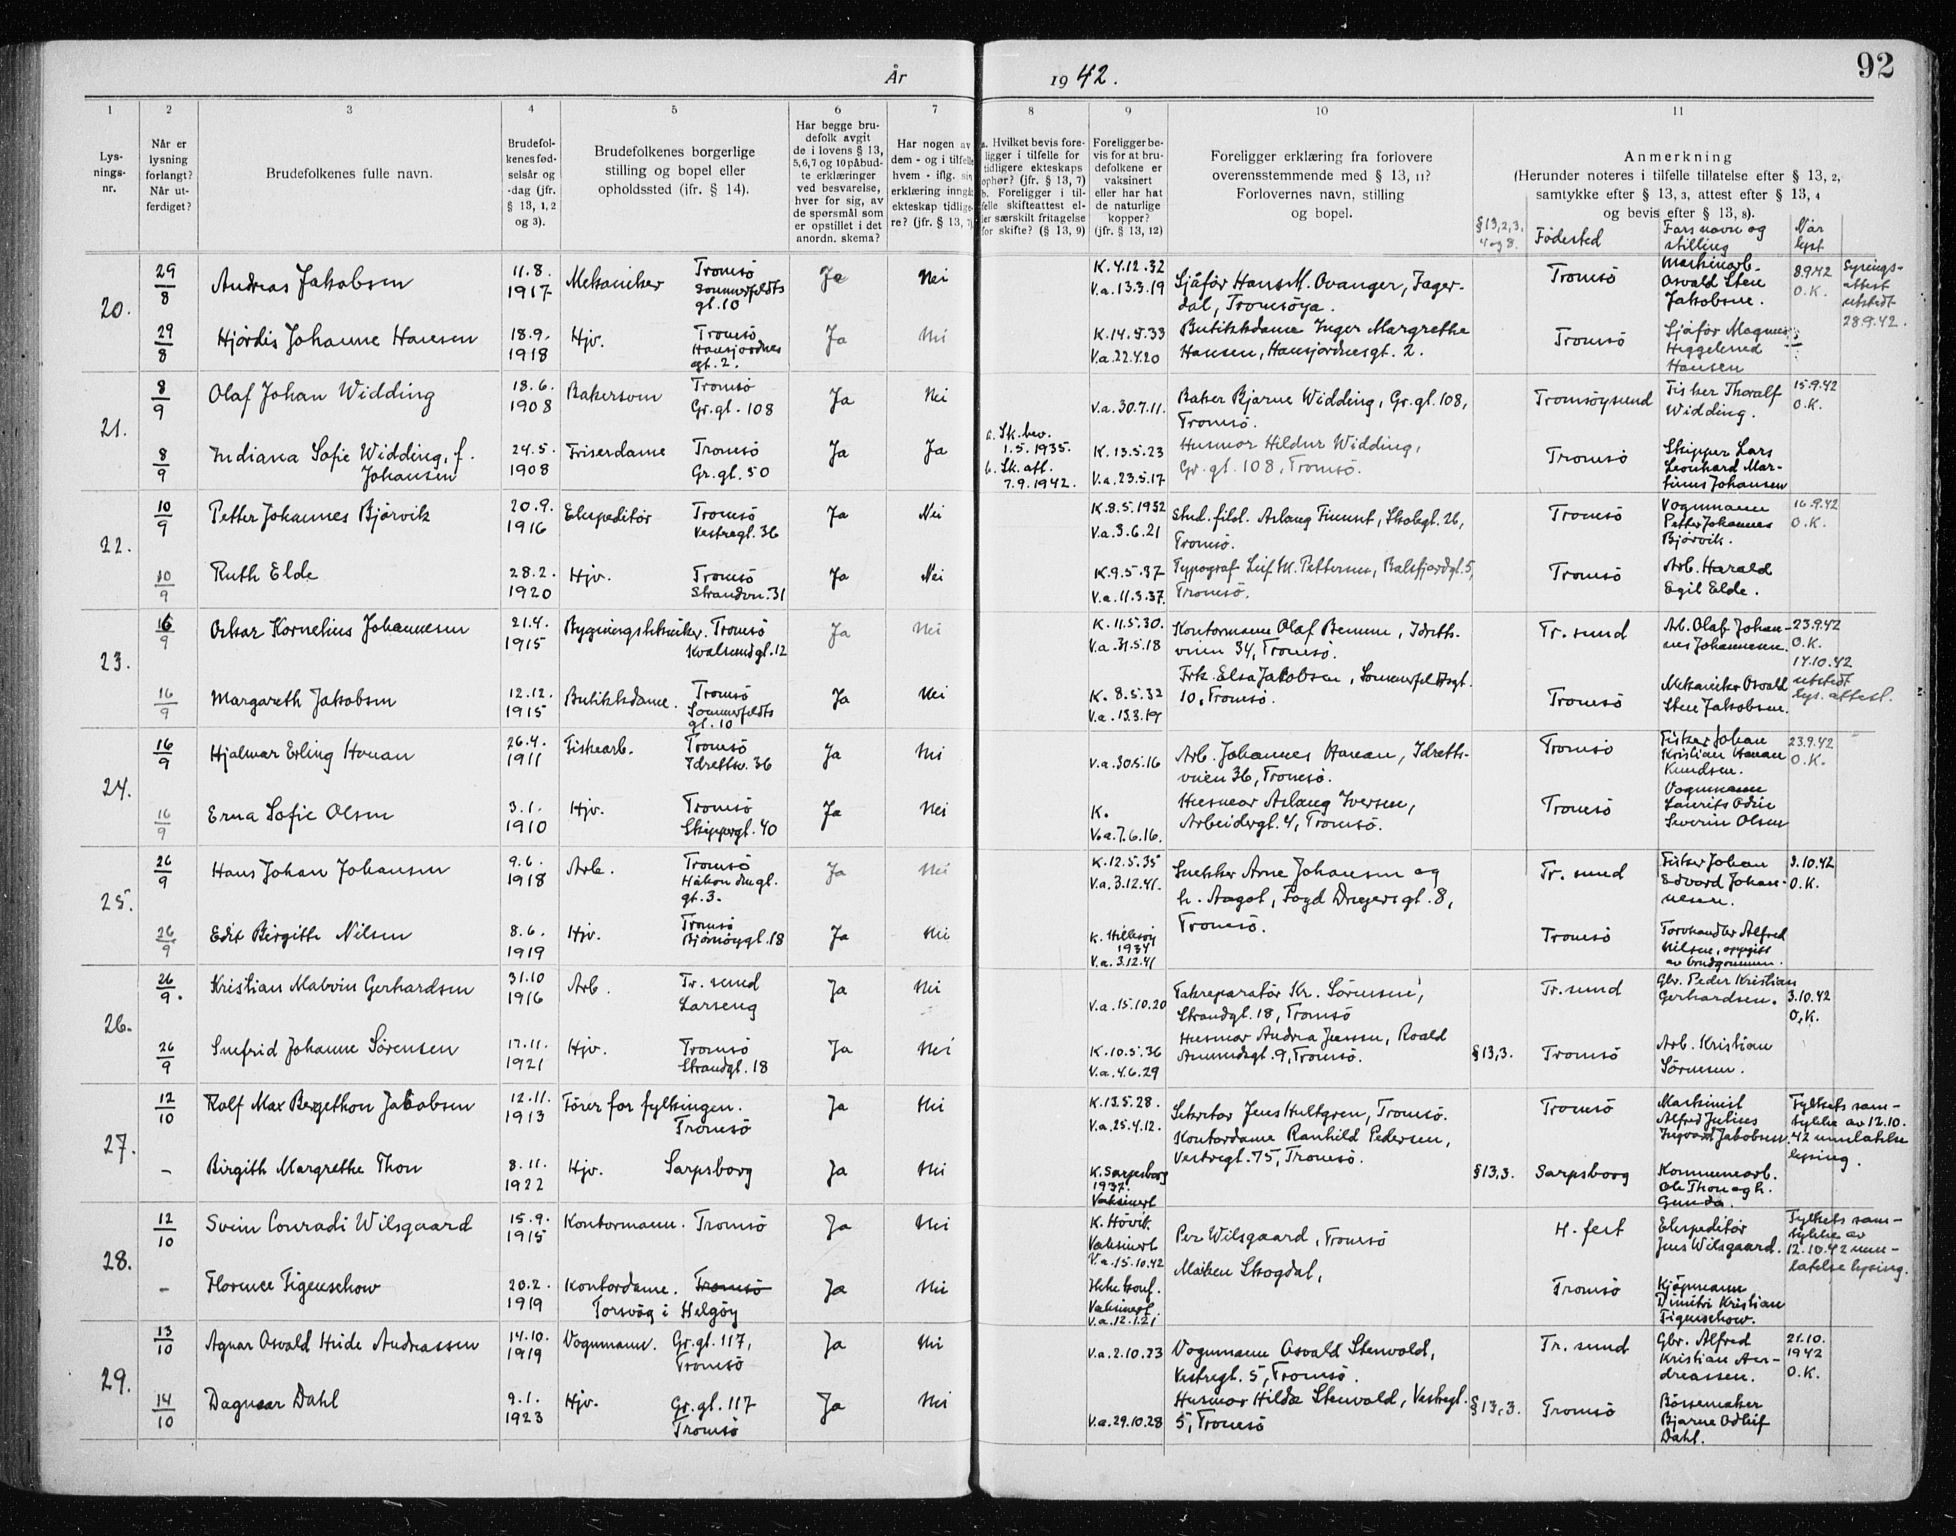 92
År 1942.
1 2 3 4 5 6 7 8 9 10 11
Lys-
nings-
nr.
Når er
lysning
forlangt?
Når ut-
ferdiget?
Brudefolkenes fulle navn.
Brudefol-
kenes fød-
selsår og
-dag (jfr.
§ 13, 1, 2
og 3).
Brudefolkenes borgerlige
stilling og bopel eller
opholdssted (jfr. § 14).
Har begge bru-
defolk avgit
de i lovens § 13,
5, 6, 7 og 10 påbud-
te erklæringer
ved besvarelse,
hver for sig, av
de spørsmål som
er opstillet i det
anordn. skema?
Har nogen av
dem - og i tilfelle
hvem - iflg. sin
erklæring inngå
ekteskap tidlige-
re? (jfr. § 13, 7)
a. Hvilket bevis fore-
ligger i tilfelle for
tidligere ekteskaps
ophør? (jfr. § 13, 7)
b. Foreligger i til-
felle skifteattest el-
ler særskilt fritagelse
for skifte? (§ 13, 9)
Foreligger be-
vis for at bru-
defolkene er
vaksinert
eller har hat
de naturlige
kopper?
(jfr. § 13, 12)
Foreligger erklæring fra forlovere
overensstemmende med § 13, 11?
Forlovernes navn, stilling
og bopel.
Anmerkning
(Herunder noteres i tilfelle tillatelse efter § 13, 2,
samtykke efter § 13, 3, attest efter § 13, 4
og bevis efter § 13, 8).
§13,2,3,
4 og 8.
Fødested
Fars navn og
stilling
Når
lyst
20.
29/8 Andreas Jakobsen 11.8. 1917 Mekaniker Tromsö Sommerfeldts gt. 10 Ja Nei K. 4.12.32 V.a. 13.3.19
Sjåfør Hans M. Ovanger, Fager-
dal, Tromsøya.
Tromsö Maskinarb. Osvald Stene Jakobsen. 8.9.42 O.K.
Lysings-
attest
utstedt
28.9.42.
29/8 Hjördis Johanne Hansen 18.9. 1918 Hjv. Tromsö Hansjordnes gt. 2. Ja Nei K. 14.5.33 V.a. 22.4.20
Butikkdame Inger Margrethe
Hansen, Hansjordnesgt. 2.
Tromsö Sjåfør Magnus Heggelund Hansen
21.
8/9 Olaf Johan Widding 18.6. 1908 Bakersvenn Tromsö Gr.gt. 108 Ja Nei V.a. 30.7.11.
Baker Bjarne Widding, Gr.gt. 108,
Tromsö.
Tromsöysund Fisker Thoralf Widding. 15.9.42 O.K.
8/9 Indiana Sofie Widding, f. Johansen 24.5. 1908 Friserdame Tromsö Gr.gt. 50 Ja Ja
a. Sk.bev.
1.5.1935.
b. Sk.att.
7.9.1942.
K. 13.5.23 V.a. 23.5.17
Husmor Hildur Widding,
Gr.gt. 108, Tromsö.
Tromsö Skipper Lars Leonhard Mar- tinus Johansen
22.
10/9 Petter Johannes Bjørvik 20.9. 1916 Ekspeditör Tromsö Vestregt. 36 Ja Nei K. 8.5.1932 V.a. 3.6.21
Stud. filol. Aslaug Finnut, Skolegt. 26,
Tromsö.
Tromsö Vognmann Petter Johannes Bjørvik. 16.9.42 O.K.
10/9 Ruth Elde 28.2. 1920 Hjv. Tromsö Strandvn. 31 Ja Nei K. 9.5.37 V.a. 11.3.37.
Typograf Leif M. Pettersen, Balsfjordgt. 5,
Tromsö.
Tromsö Arb. Harald Egil Elde.
23.
16/9 Oskar Kornelius Johannesen 21.4. 1915 Bygningstekniker. Tromsö Kvalsundgt. 12 Ja Nei K. 11.5.30. V.a. 31.5.18
Kontormann Olaf Bemun, Idretts-
veien 34, Tromsö.
Tr. sund Arb. Olaf Johan- nes Johannesen. 23.9.42 O.K.
14.10.42
utstedt
lys. attest.
16/9 Margareth Jakobsen 12.12. 1915 Butikkdame. Tromsö Sommerfeldts gt. 10 Ja Nei K. 8.5.32 V.a. 13.3.19
Frk. Elsa Jakobsen, Sommerfeldtsgt.
10, Tromsö.
Tromsö Mekaniker Osvald Stene Jakobsen.
24.
16/9 Hjalmar Erling Hanan 26.4. 1911 Fiskearb. Tromsö Idrettsv. 36 Ja Nei V.a. 30.5.16
Arb. Johannes Hanan, Idretts-
veien 36, Tromsö.
Tromsö Fisker Johan Kristian Hanan Knudsen. 23.9.42 O.K.
16/9 Erna Sofie Olsen 3.1. 1910 Hjv. Tromsö Skippergt. 40 Ja Nei K. V.a. 7.6.16.
Husmor Aslaug Iversen,
Arbeidergt. 4, Tromsö.
Tromsö Vognmann Laurits Odin Severin Olsen
25.
26/9 Hans Johan Johansen 9.6. 1918 Arb. Tromsö Håkon den gl. gt. 3. Ja Nei K. 12.5.35 V.a. 3.12.41.
Snekker Arne Johansen og
h. Aagot, Fogd Dreyersgt. 8,
Tromsö.
Tr. sund Fisker Johan Edvard Johan- nesen. 3.10.42 O.K.
26/9 Edit Birgithe Nilsen 8.6. 1919 Hjv. Tromsö Bjørnøygt. 18 Ja Nei K. Hillesøy 1934 V.a. 3.12.41
Tromsö Torvhandler Alfred Nilsen, oppgitt av brudgommen.
26.
26/9. Kristian Malvin Gerhardsen 31.10 1916 Arb. Tr. sund Larseng Ja Nei V.a. 15.10.20
Takreparatör Kr. Sörensen,
Strandgt. 18, Tromsö
Tr. sund Gbr. Peder Kristian Gerhardsen. 3.10.42 O.K.
26/9 Snefrid Johanne Sørensen 17.11. 1921 Hjv. Tromsö Strandgt. 18 Ja Nei K. 10.5.36 V.a. 4.6.29
Husmor Andrea Jensen, Roald
Amundsgt. 9, Tromsö.
§13,3. Tromsö Arb. Kristian Sørensen.
27.
12/10 Rolf Max Bergethon Jakobsen 12.11. 1913 Fører for fylkingen. Tromsö Ja Nei K. 13.5.28. V.a. 25.4.12.
Sekretær Jens Hultgren, Tromsö.
Kontordame Ranhild Pedersen,
Vestregt. 75, Tromsö.
Tromsö Maskinist Alfred Julius Ingvard Jakobsen.
Fylkets sam-
tykke av 12.10.
42 unnlatelse
lysing.
- Birgith Margrethe Thon 8.11. 1922 Hjv. Sarpsborg Ja Nei K. Sarpsborg 1937. Vaksinert
§13,3. Sarpsborg Kommunearb. Ole Thon og h. Gunda.
28.
12/10 Svein Conradi Wilsgaard 15.9. 1915 Kontormann. Tromsö Ja Nei K. Hövik Vaksinert V.a. 15.10.42
Per Wilsgaard, Tromsö
H.fest Ekspeditör Jens Wilsgaard.
Fylkets sam-
tykke av
12.10.42 unn-
latelse lysing.
- Florence Figenschow 20.2. 1919 Kontordame. Tromsö Torsvåg i Helgöy Ja Nei Ikke konf. Vaksinert. V.a. 12.1.21
Maiken Skogdal,
Tromsö Kjøpmann Dimitri Kristian Figenschow.
29.
13/10 Agnar Osvald Heide Andreassen 14.10. 1919 Vognmann. Gr.gt. 117, Tromsö Ja Nei V.a. 2.10.23
Vognmann Osvald Stenvold,
Vestregt. 5, Tromsö.
Tr. sund Gbr. Alfred Kristian An- dreassen. 21.10. 1942 O.K.
14/10 Dagmar Dahl 9.1. 1923 Hjv. Gr.gt. 117 Tromsö Ja Nei V.a. 29.10.28
Husmor Hilda Stenvold, Vestregt.
5, Tromsö
§13,3. Tromsö Bössemaker Bjarne Odleif Dahl.